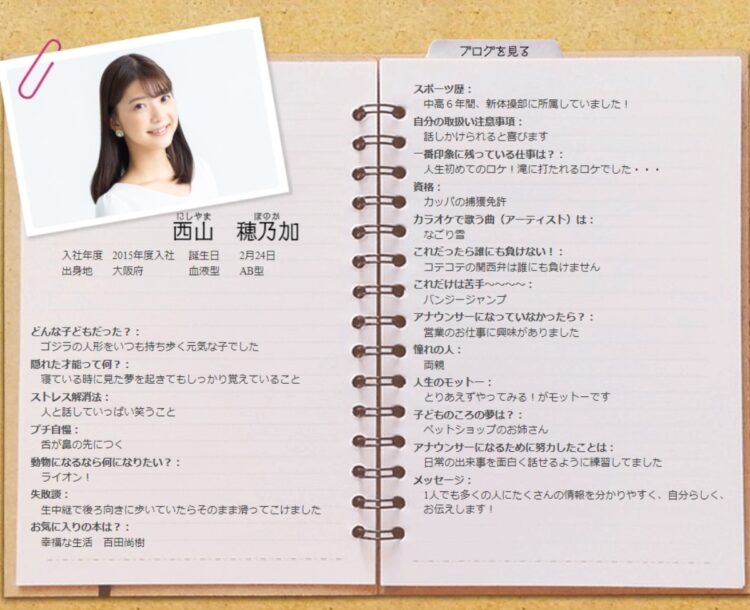 ブログを見る
にしやま ほのか
西山 穂乃加
入社年度 2015年度入社 誕生日 2月24日
出身地 大阪府 血液型 AB型
どんな子どもだった？：
ゴジラの人形をいつも持ち歩く元気な子でした
隠れた才能って何？：
寝ている時に見た夢を起きてもしっかり覚えていること
ストレス解消法：
人と話していっぱい笑うこと
プチ自慢：
舌が鼻の先につく
動物になるなら何になりたい？：
ライオン！
失敗談：
生中継で後ろ向きに歩いていたらそのまま滑ってこけました
お気に入りの本は？：
幸福な生活 百田尚樹
スポーツ歴：
中高６年間、新体操部に所属していました！
自分の取扱い注意事項：
話しかけられると喜びます
一番印象に残っている仕事は？：
人生初めてのロケ！滝に打たれるロケでした・・・
資格：
カッパの捕獲免許
カラオケで歌う曲（アーティスト）は：
なごり雪
これだったら誰にも負けない！：
コテコテの関西弁は誰にも負けません
これだけは苦手～～～～：
バンジージャンプ
アナウンサーになっていなかったら？：
営業のお仕事に興味がありました
憧れの人：
両親
人生のモットー：
とりあえずやってみる！がモットーです
子どものころの夢は？：
ペットショップのお姉さん
アナウンサーになるために努力したことは：
日常の出来事を面白く話せるように練習してました
メッセージ：
1人でも多くの人にたくさんの情報を分かりやすく、自分らしく、
お伝えします！